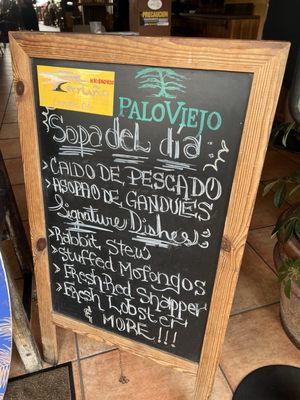 PRECAUCIÓN
PALOVIEJO
Sopa del día
CALDO DE PESCADO
ASOPAO DE GANDULE'S
Signature Dishes
Rabbit Stew
Stuffed Mofongos
Fresh Red Snapper
Fresh Lobster
& MORE!!!